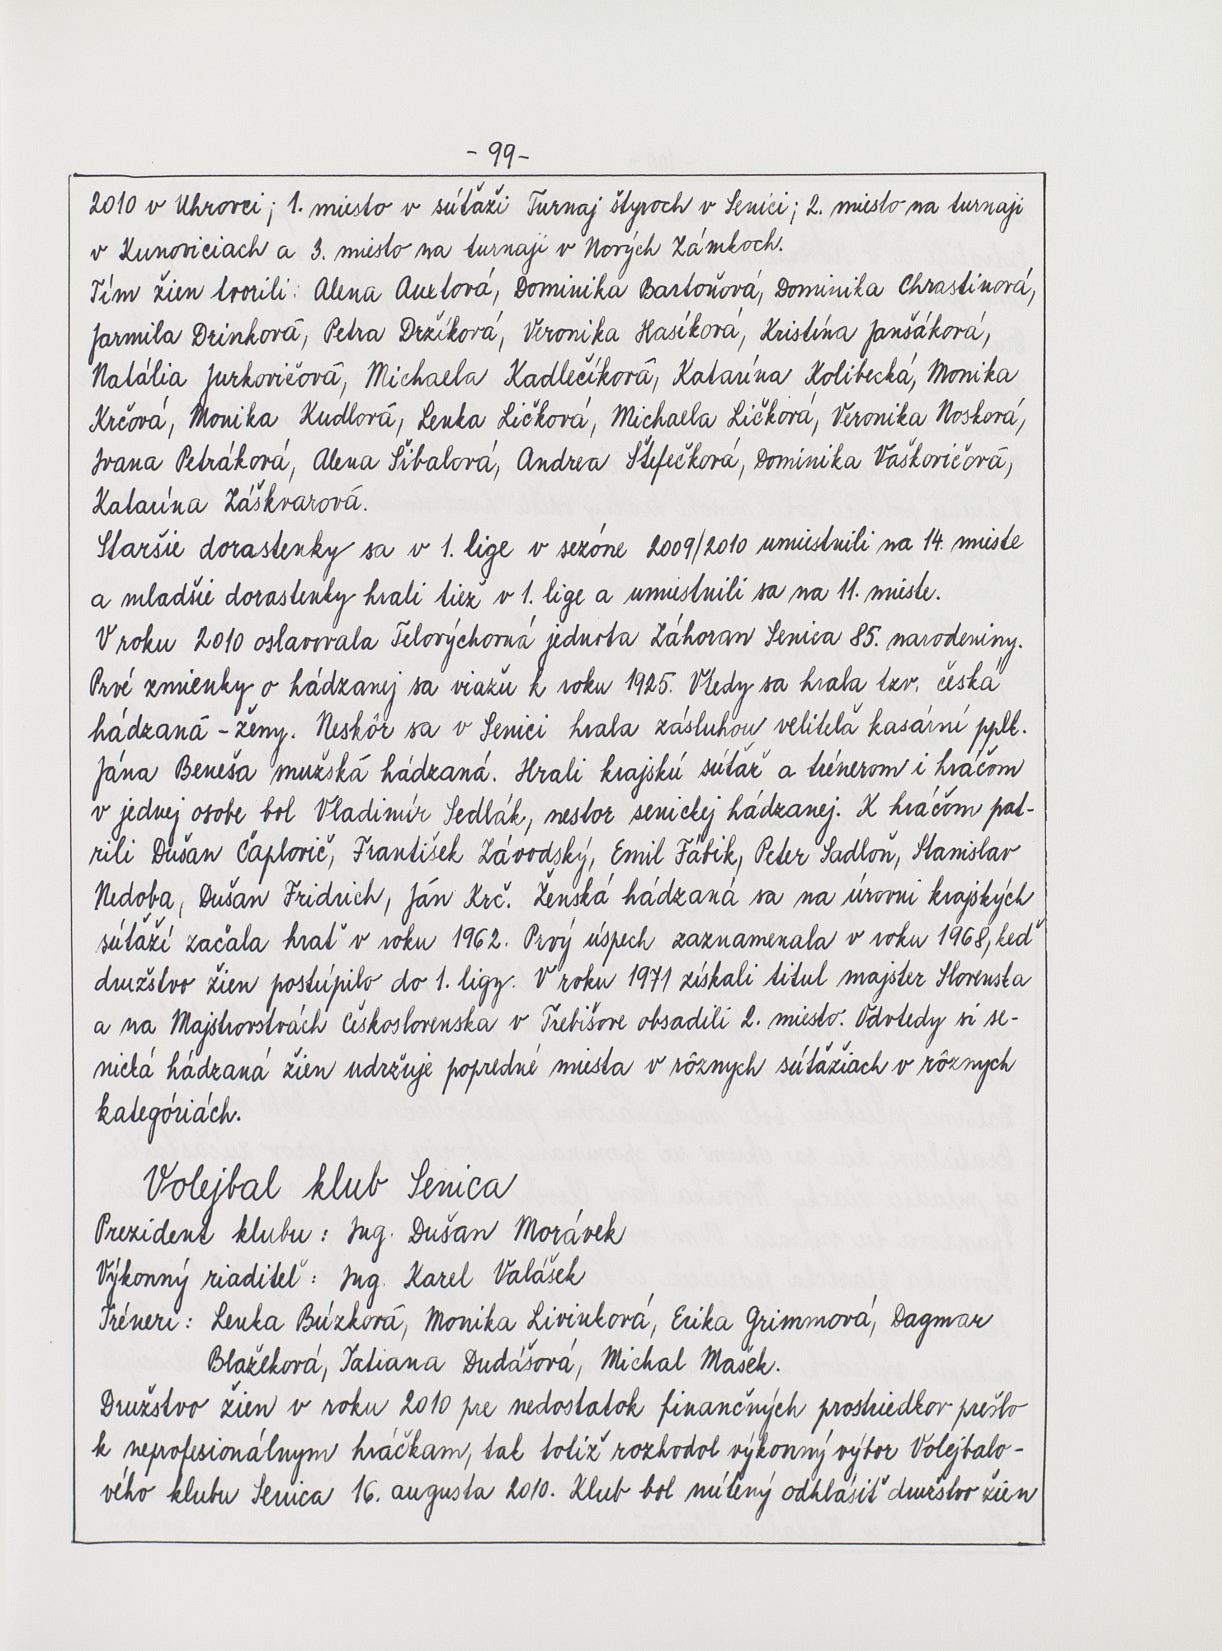 - 99 -
2010 v Uhrovci; 1. miesto v súťaži Turnaj štyroch v Senici; 2. miesto na turnaji
v Kunoviciach a 3. miesto na turnaji v Nových Zámkoch.
Tím žien tvorili: Alena Auxtová, Dominika Bartoňová, Dominika Chrastinová,
Jarmila Drinková, Petra Držíková, Veronika Hasíková, Kristína Janšáková,
Natália Jurkovičová, Michaela Kadlečíková, Katarína Kolibecká, Monika
Krčová, Monika Kudlová, Lenka Ličková, Michaela Ličková, Veronika Nosková,
Ivana Petráková, Alena Šibalová, Andrea Štefečková, Dominika Vaškovičová,
Katarína Záškvarová.
Staršie dorastenky sa v 1. lige v sezóne 2009/2010 umiestnili na 14. mieste
a mladšie dorastenky hrali tiež v 1. lige a umiestnili sa na 11. mieste.
V roku 2010 oslavovala Telovýchovná jednota Záhoran Senica 85. narodeniny.
Prvé zmienky o hádzanej sa viažu k roku 1925. Vtedy sa hrala tzv. česká
hádzaná - ženy. Neskôr sa v Senici hrala zásluhou veliteľa kasární pplk.
Jána Beneša mužská hádzaná. Hrali krajskú súťaž a trénerom i hráčom
v jednej osobe bol Vladimír Sedlák, nestor senickej hádzanej. K hráčom pat-
rili Dušan Čaplovič, František Závodský, Emil Fábik, Peter Sadloň, Stanislav
Nedoba, Dušan Fridrich, Ján Krč. Ženská hádzaná sa na úrovni krajských
súťaží začala hrať v roku 1962. Prvý úspech zaznamenala v roku 1968, keď
družstvo žien postúpilo do 1. ligy. V roku 1971 získali titul majster Slovenska
a na Majstrovstvách Československa v Trebišove obsadili 2. miesto. Odvtedy si se-
nická hádzaná žien udržuje popredné miesta v rôznych súťažiach v rôznych
kategóriách.
Volejbal klub Senica
Prezident klubu: Ing. Dušan Morávek
Výkonný riaditeľ: Ing. Karel Valášek
Tréneri: Lenka Búzková, Monika Livinková, Erika Grimmová, Dagmar
Blažeková, Tatiana Dudášová, Michal Mašek.
Družstvo žien v roku 2010 pre nedostatok finančných prostriedkov prešlo
k neprofesionálnym hráčkam, tak totiž rozhodol výkonný výbor Volejbalo-
vého klubu Senica 16. augusta 2010. Klub bol nútený odhlásiť družstvo žien